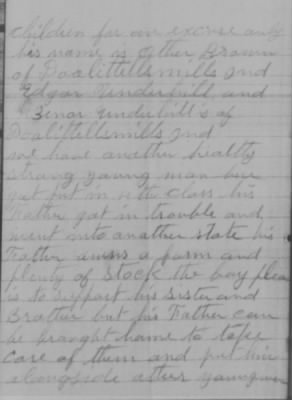 children for an excuse only
his name is Other Brown
of Doalittells mills Ind
Edgar Underhill and
Zenor Underhill's of
Doalittellsmills Ind
we have another healthy
strong young man here
not put in the class his
Father got in trouble and
went into another state his
Father owns a farm and
plenty of stock the boy pleas
is to support his sister and
Brother but his Father can
be braught home to take
care of them and put him
alongside other young men